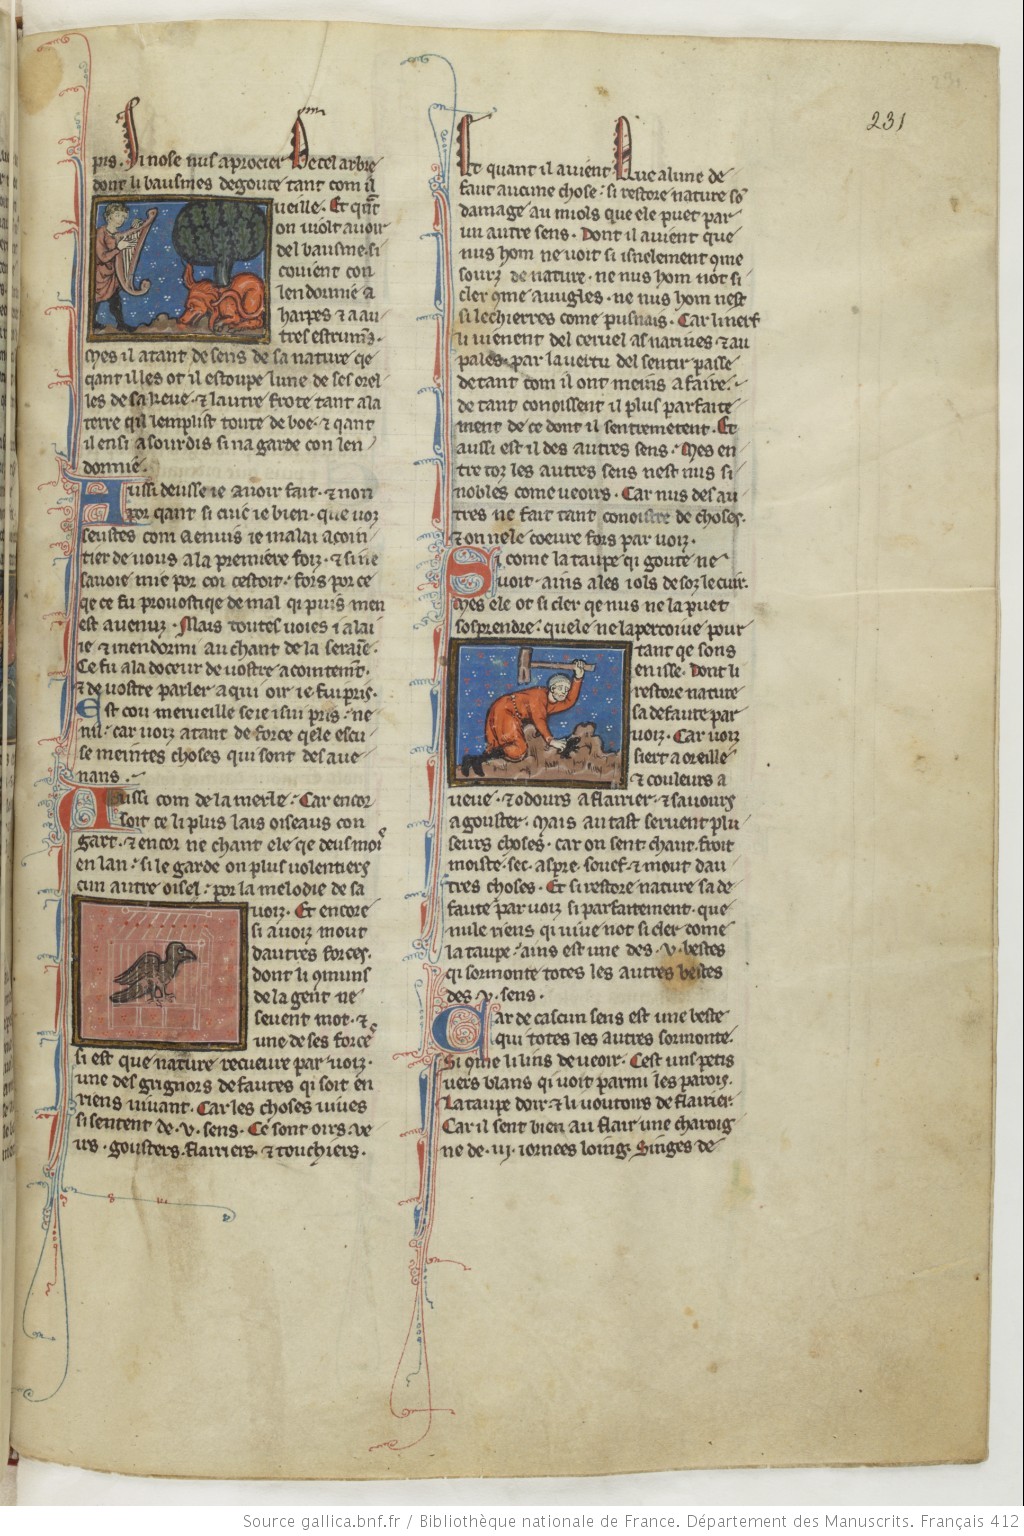 231
pis. Si nose nus aprocier A cel arbre
dont li bausmes degoute tant com il
ueille. Et qnt
on uiolt auoir
del bausme. si
couient con
lendormie a
harpes & a au
tres estrumens
Mes il a tant de sens de sa nature qe
qant il les ot il estoupe lune de ses orel
les de sa keue. & lautre frote tant a la
terre qil lemplist toute de boe. & qant
il ensi asourdis si na garde con len
dormie.
Aussi deusse ie auoir fait. & non
por qant si cuic ie bien. que uoz
seustes com a enuis ie malai acoin
tier de uous a la premiere foiz. & si ne
sauoie mie por coi cestoit. fors por ce
qe ce fu prouostiqe de mal qi puis men
est auenuz. Mais toutes uoies i alai
ie & mendormi au chant de la seraine.
Ce fu a la doceur de uostre acointement.
& de uostre parler a qui oir ie fui pris.
Est cou merueille se ie i sui pris. ne
nil. car uoiz a tant de force qele escu
se meintes choses qui sont desaue
nans.
Aussi com de la merle. Car encor
soit ce li plus lais oiseaus con
gart. & encor ne chant ele qe deus mois
en lan. si le garde on plus uolentiers
cun autre oisel. por la melodie de sa
uoiz. Et encore
si a uoiz mout
dautres forces.
dont li qmuns
de la gent ne
seuent mot. &
une de ses forces
si est que nature recueure par uoiz.
une des grignors defautes qi soit en
riens uiuant. Car les choses uiues
si sentent de .v. sens. Ce sont oirs. ve
irs. gousters. flairiers. & touchiers.
Et quant il auient A aucalune de
faut aucune chose. si restore nature so
damage au miols que ele puet par
un autre sens. Dont il auient que
nus hom ne uoit si isnelement qme
sourz de nature. ne nus hom not si
cler qme auugles. ne nus hom nest
si lechierres come pusnais. Car li nerf
li uienent del ceruel as narines & au
pales. par la uertu del sentir passe
de tant com il ont meins a faire.
de tant conoissent il plus parfaite
ment de ce dont il sentremetent. Et
aussi est il des autres sens. Mes en
tre toz les autres sens nest nus si
nobles come ueoirs. Car nus des au
tres ne fait tant conoistre de choses.
& on nele coeure fors par uoiz.
Si come la taupe qi goute ne
uoit. ains a les iols desoz le cuir.
Mes ele ot si cler qe nus ne la puet
sosprendre. quele ne laperçoiue pour
tant qe sons
en isse. Dont li
restore nature
sa defaute par
uoiz. Car uoiz
siert a oreille
& couleurs a
ueue. & odours a flairier. & sauours
a gouster. Mais au tast seruent plu
seurs choses. car on sent chaut. froit
moiste. sec. aspre. souef. & mout dau
tres choses. Et si restore nature sa de
faute par uoiz si parfaitement. que
nule riens qi uiue not si cler come
la taupe. ains est une des .v. bestes
qi sormonte totes les autres bestes
des .v. sens.
Car de cascun sens est une beste
qui totes les autres sormonte.
Si qme li lins de ueoir. Cest uns petis
uers blans qi uoit parmi les parois.
La taupe doir. & li uoutoirs de flairier.
Car il sent bien au flair une charoig
ne de .iij. iornees loing. Singes de
Source gallica.bnf.fr / Bibliothèque nationale de France. Département des Manuscrits. Français 412